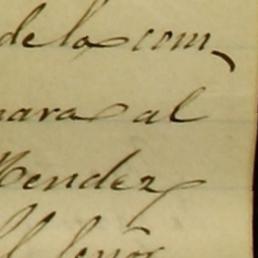 de la com,
nara al
Mendez
el Señor